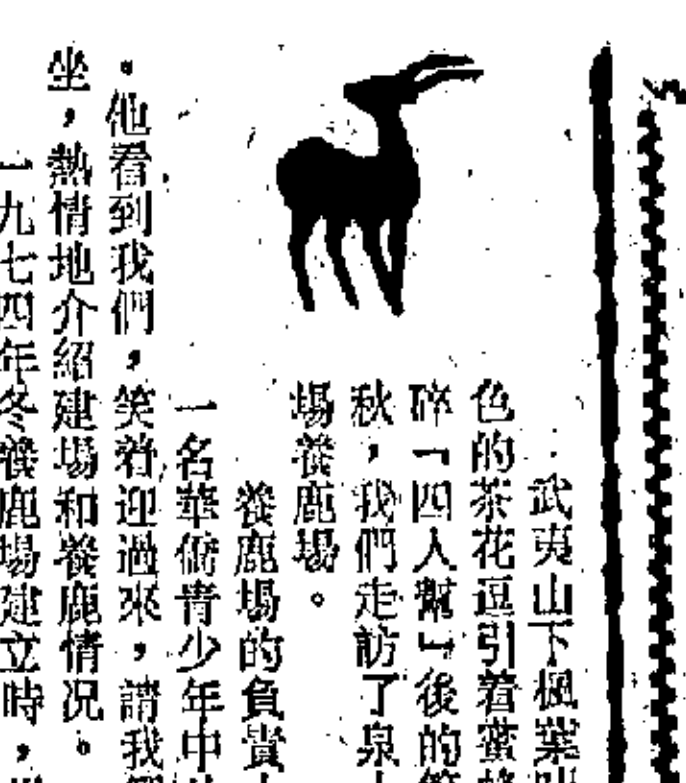 武夷山下楓葉
色的茶花逗引着蜜
碎「四人幫」後的
秋，我們走訪了泉
場養鹿場。
養鹿場的負責
一名華僑青少年中
。他看到我們，笑着迎過來，請我
坐，熱情地介紹建場和養鹿情况。
一九七四年冬養鹿場建立時，